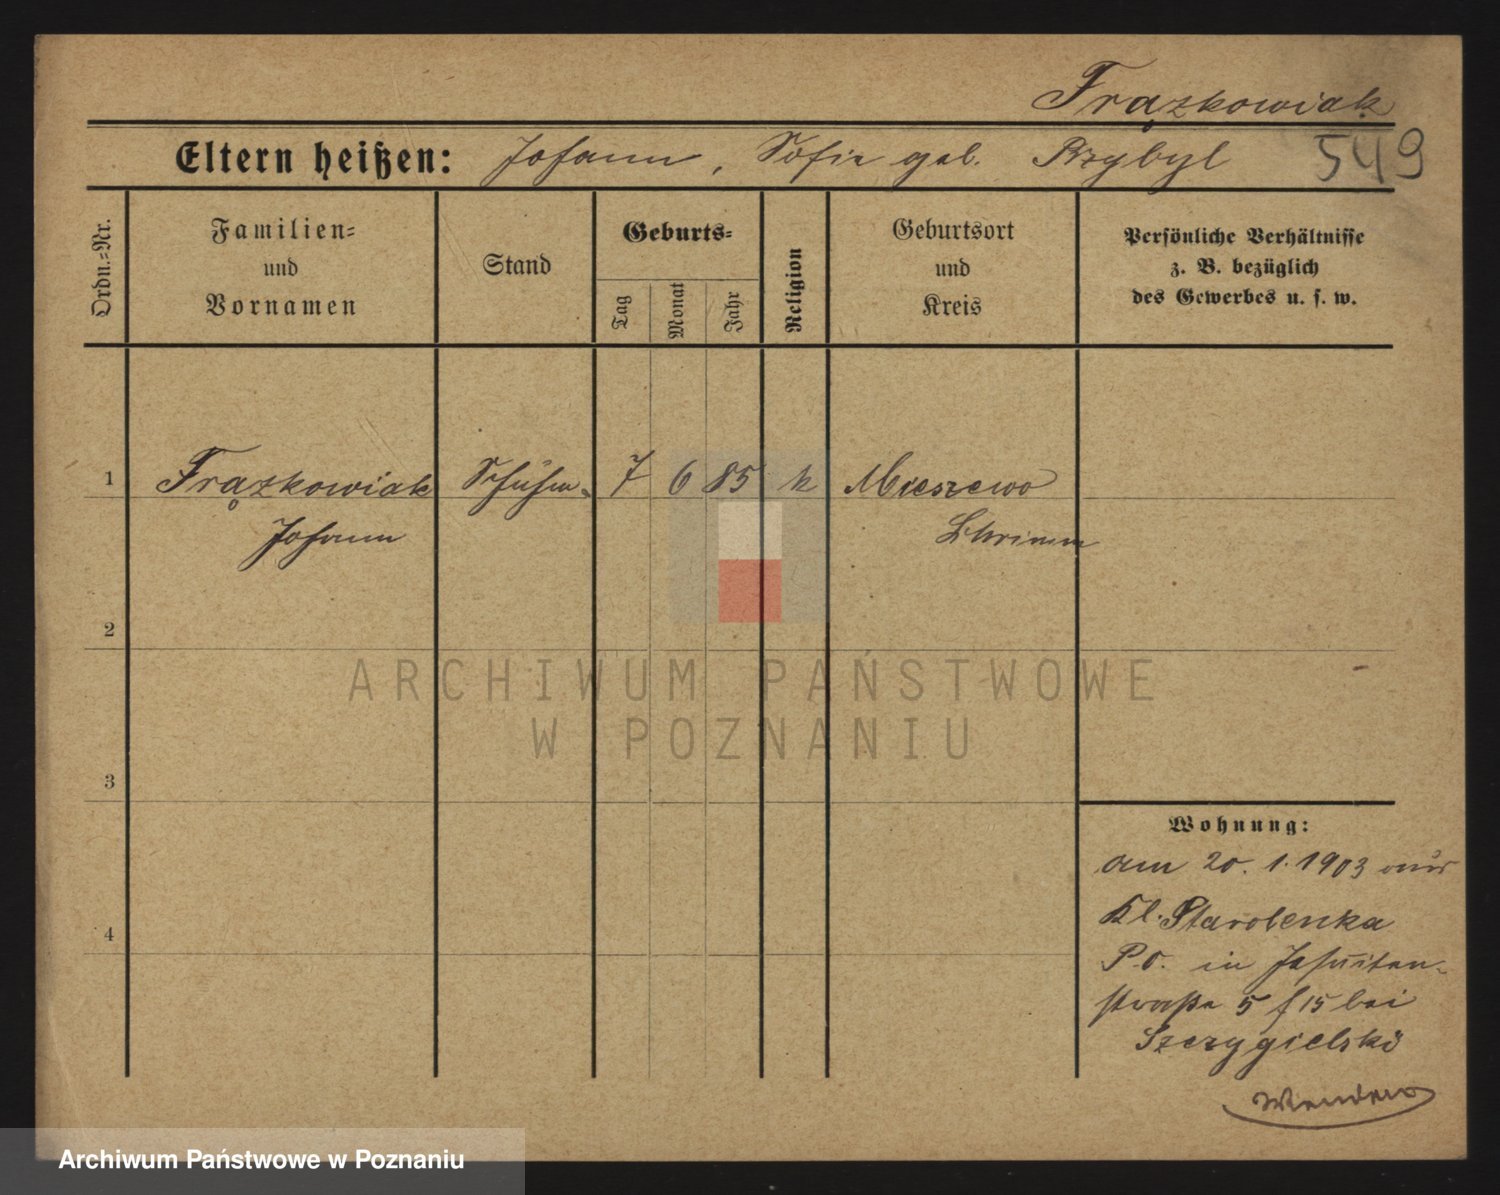 Frązkowiak
Eltern heißen: Johann, Sofie geb. Przybyl
549
Ordn.=Nr.
Familien=
und
Vornamen
Stand
Geburts=
Tag
Monat
Jahr
Religion
Geburtsort
und
Kreis
Persönliche Verhältnisse
z. B. bezüglich
des Gewerbes u. s. w.
1 Frązkowiak Schuhm. 7 6 85 k Mieszewo
Johann Schrimm
2
ARCHIWUM PAŃSTWOWE
W POZNANIU
3
Wohnung:
am 20. 1. 1903 aus
Kl. Starolenka
P.O. in Jesuiten-
straße 5 f 15 bei
4
Szczygielski
Archiwum Państwowe w Poznaniu